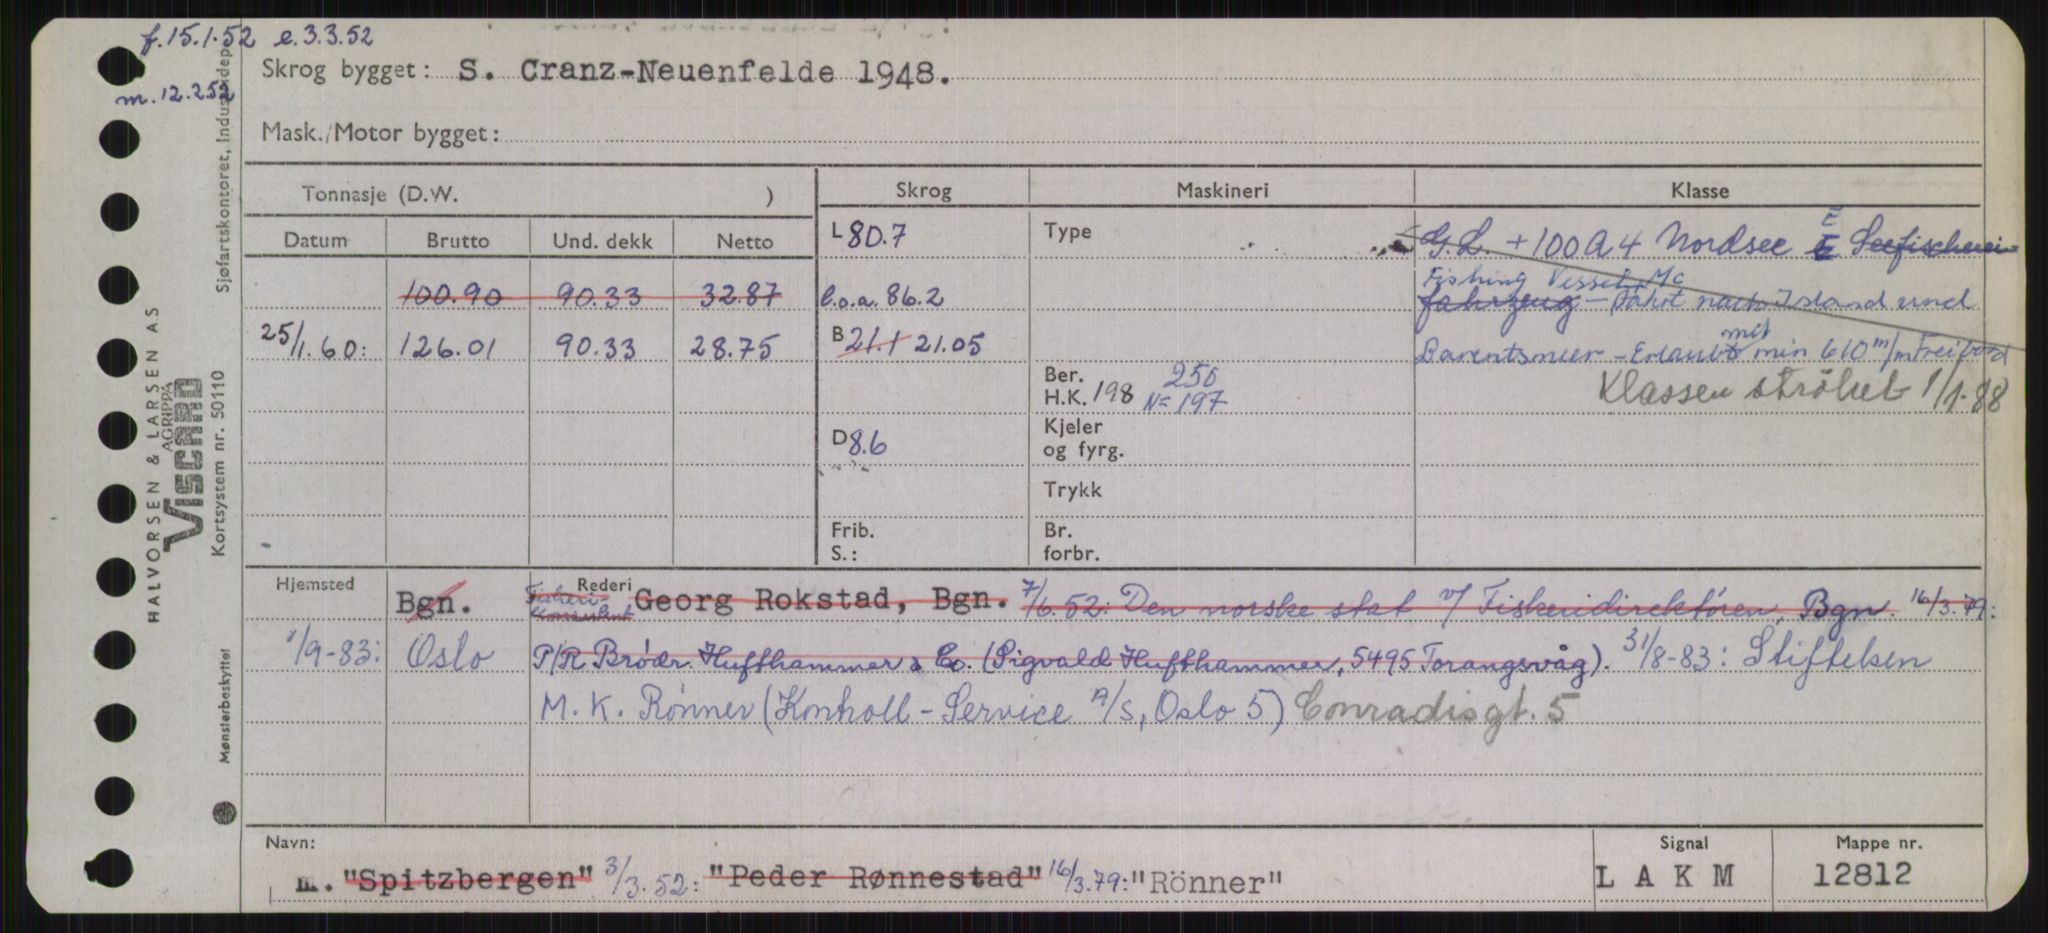 f.15.1.52 e.3.3.52
m.12.2.52
Skrog bygget: S. Cranz-Neuenfelde 1948.
Mask./Motor bygget:
Tonnasje (D.W. )
Skrog
Maskineri
Klasse
Datum
Brutto
Und. dekk
Netto
100.90 90.33 32.87
25/1.60: 126.01 90.33 28.75
L 80.7
l.o.a. 86.2
B 21.1 21.05
D 8.6
Frib.
S.:
Type
Ber. 250
H.K. 198 N= 197
Kjeler
og fyrg.
Trykk
Br.
forbr.
G.L. +100A4 Nordsee E E Seefischerei-
Fishing Vessel, Mc
fahrzeug - Fahrt nach Island und
mit
Barentsmeer - Erlaubt min 610 m/m Freibord
Klassen strøket 1/1-88
Hjemsted
Bgn.
Rederi
Fisheri-
konsulent Georg Rokstad, Bgn. 7/6.52: Den norske stat v/ Fiskeridirektøren, Bgn. 16/3.79:
1/9-83: Oslo P/R Brødr. Hufthammer & Co. (Sigvald Hufthammer, 5495 Torangsvåg). 31/8-83: Stiftelsen
M.K. Rønner (Kontroll-Service A/S, Oslo 5) Conradisgt. 5
Navn:
m. "Spitzbergen" 3/3.52: "Peder Rønnestad" 16/3.79: "Rönner"
Signal
L A K M
Mappe nr.
12812
HALVORSEN & LARSEN AS
AGRIPPA
VISCARD
Kortsystem nr. 50110
Sjøfartskontoret, Industridep.
Mønsterbeskyttet